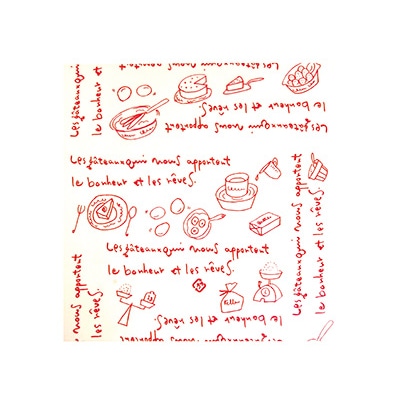 Les gâteaux qui nous apportent
le bonheur et les rêves.
Les gâteaux qui nous apportent
le bonheur et
Les gâteaux qui nous apportent
le bonheur et les rêves.
Les gâteaux qui nous apportent
le bonheur et les rêves.
Les gâteaux qui nous apportent
le bonheur et les rêves.
nous apportent
les rêves.
le bonheur et les rêves.
Les gâteaux qui nous apportent